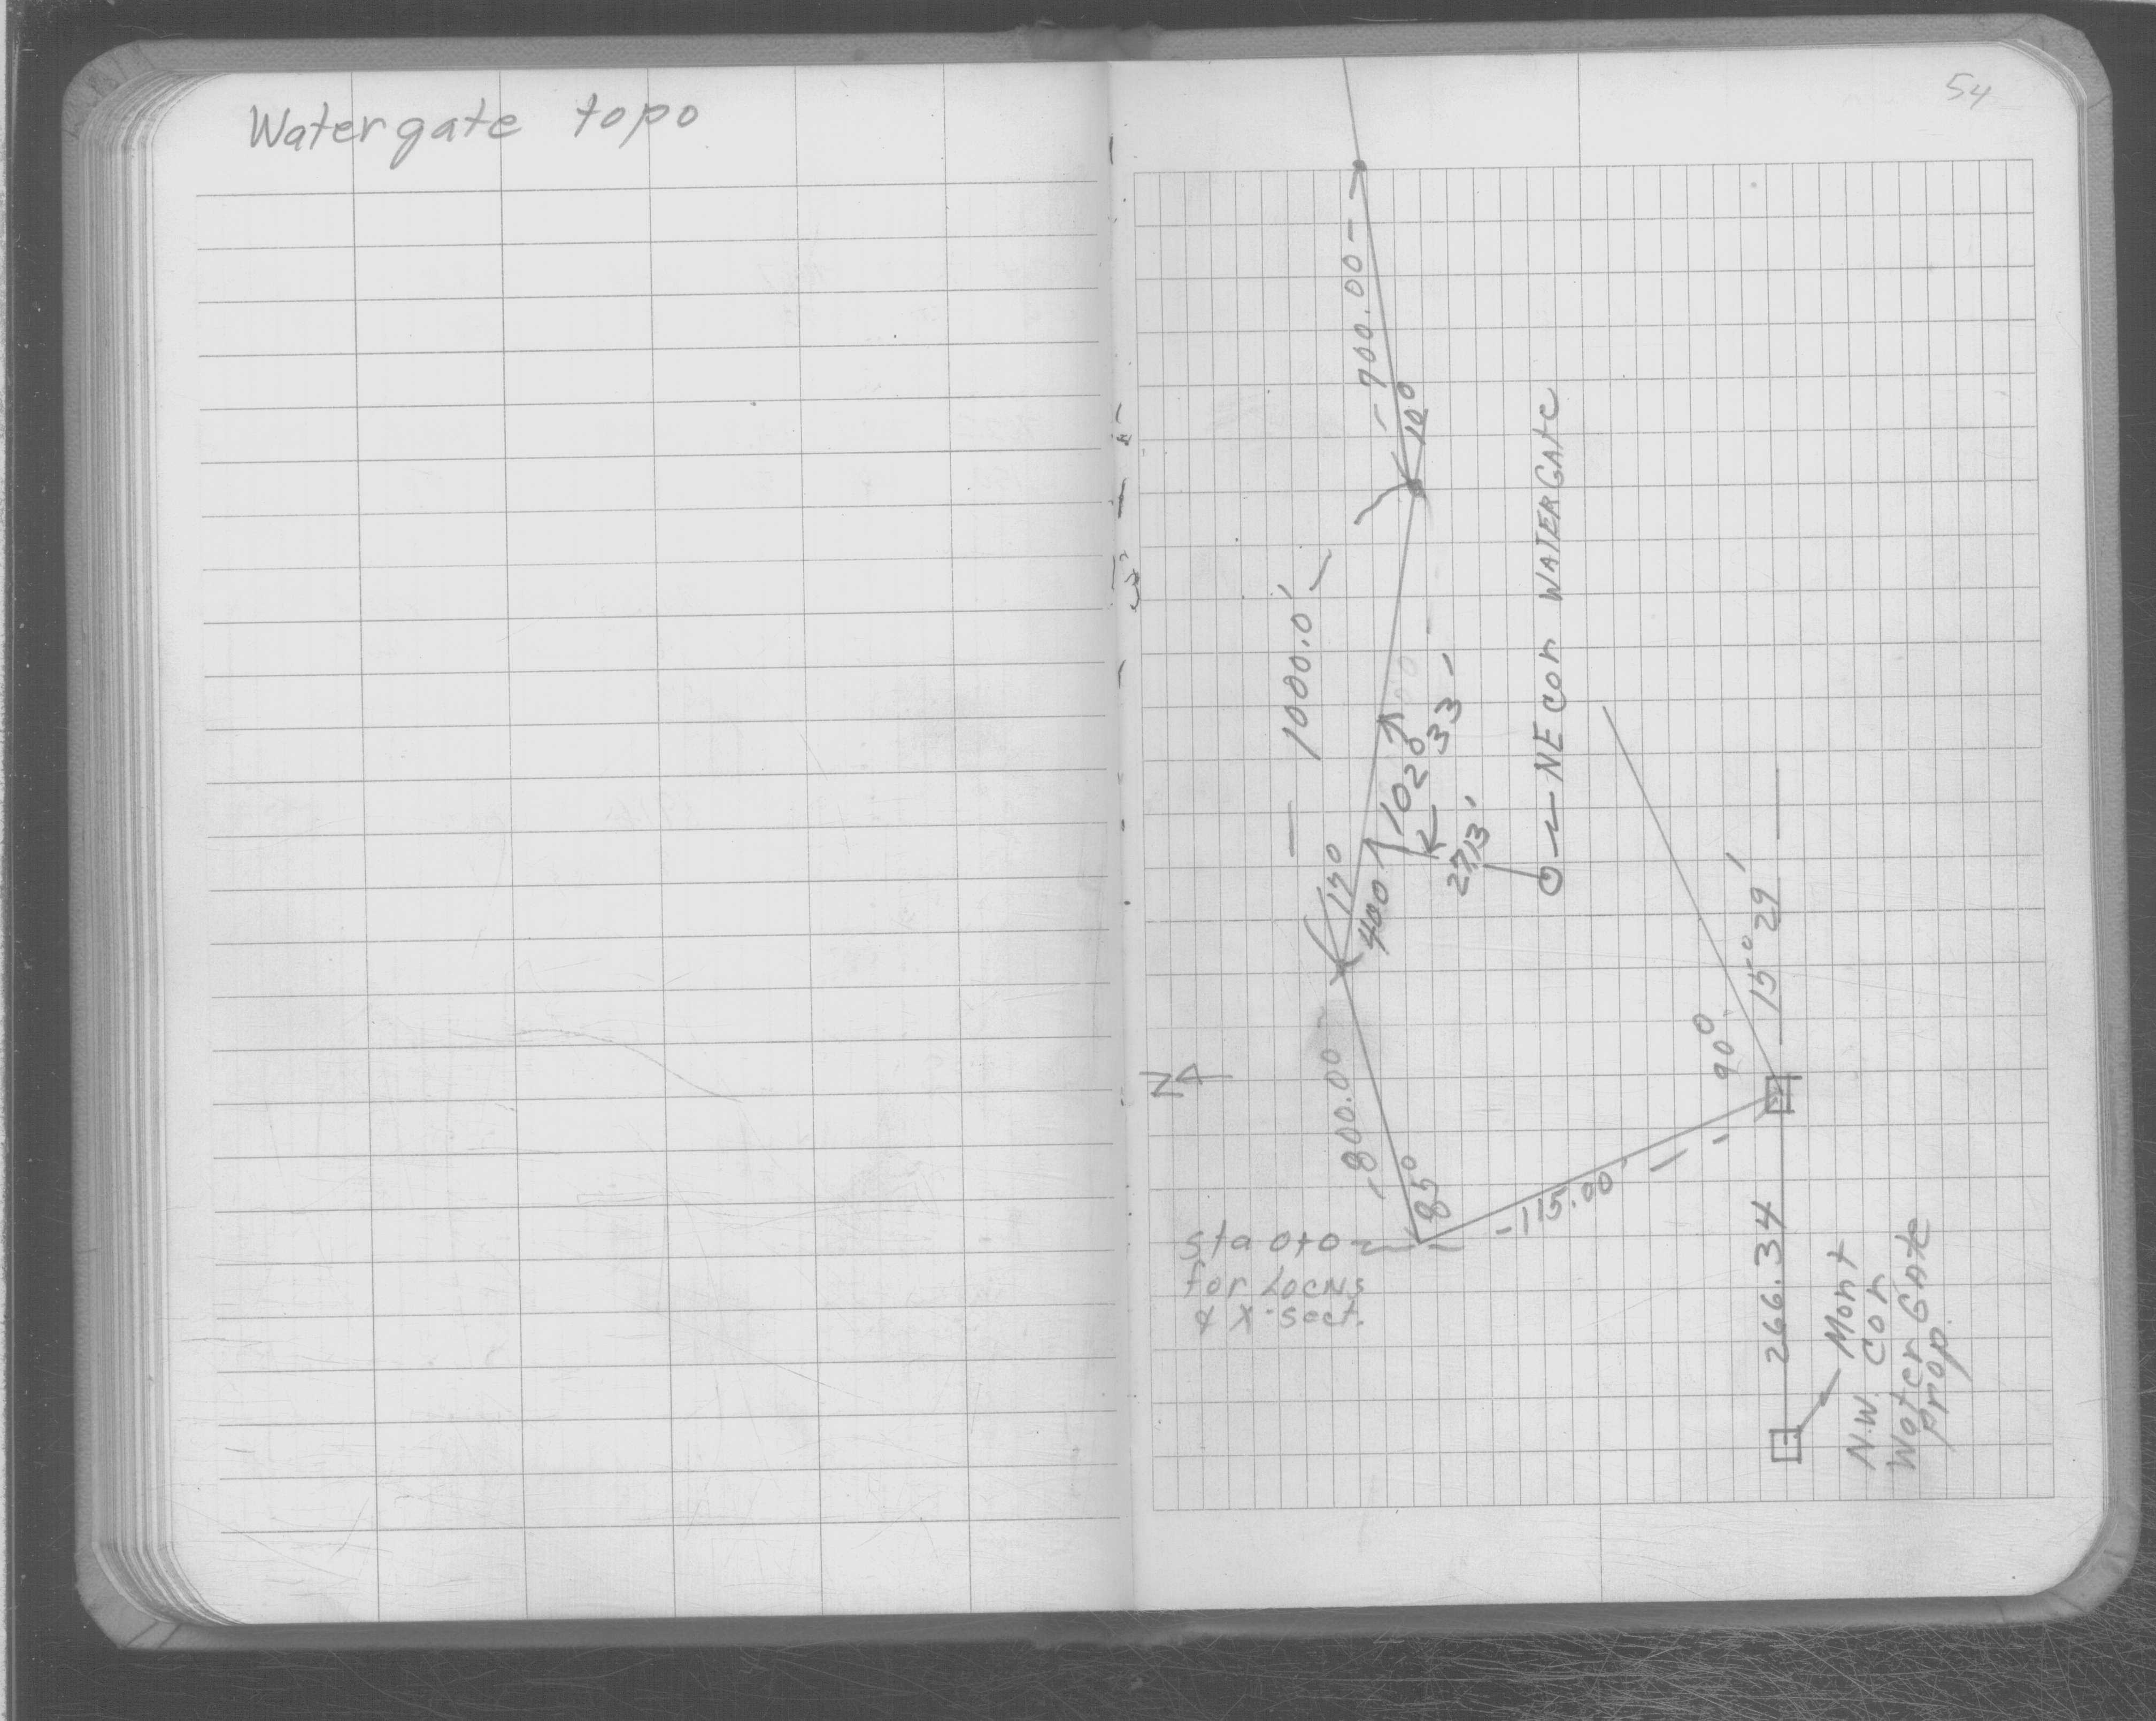 Watergate topo
54
- 700.00 -
10°
- 1000.0' -
NE Cor WATERGATE
102° 33'
27.3'
400
17°
15° 29'
90°
N
- 800.00 -
85°
- 115.00 -
Sta 0+0
for Locns
& X-sect.
266.34
Mont
N.W. Cor
Water Gate
prop.